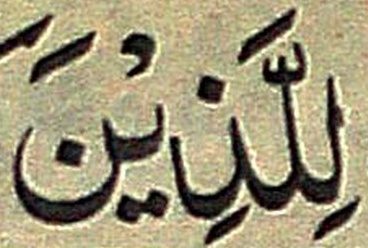 لِلَّذِيْنَ